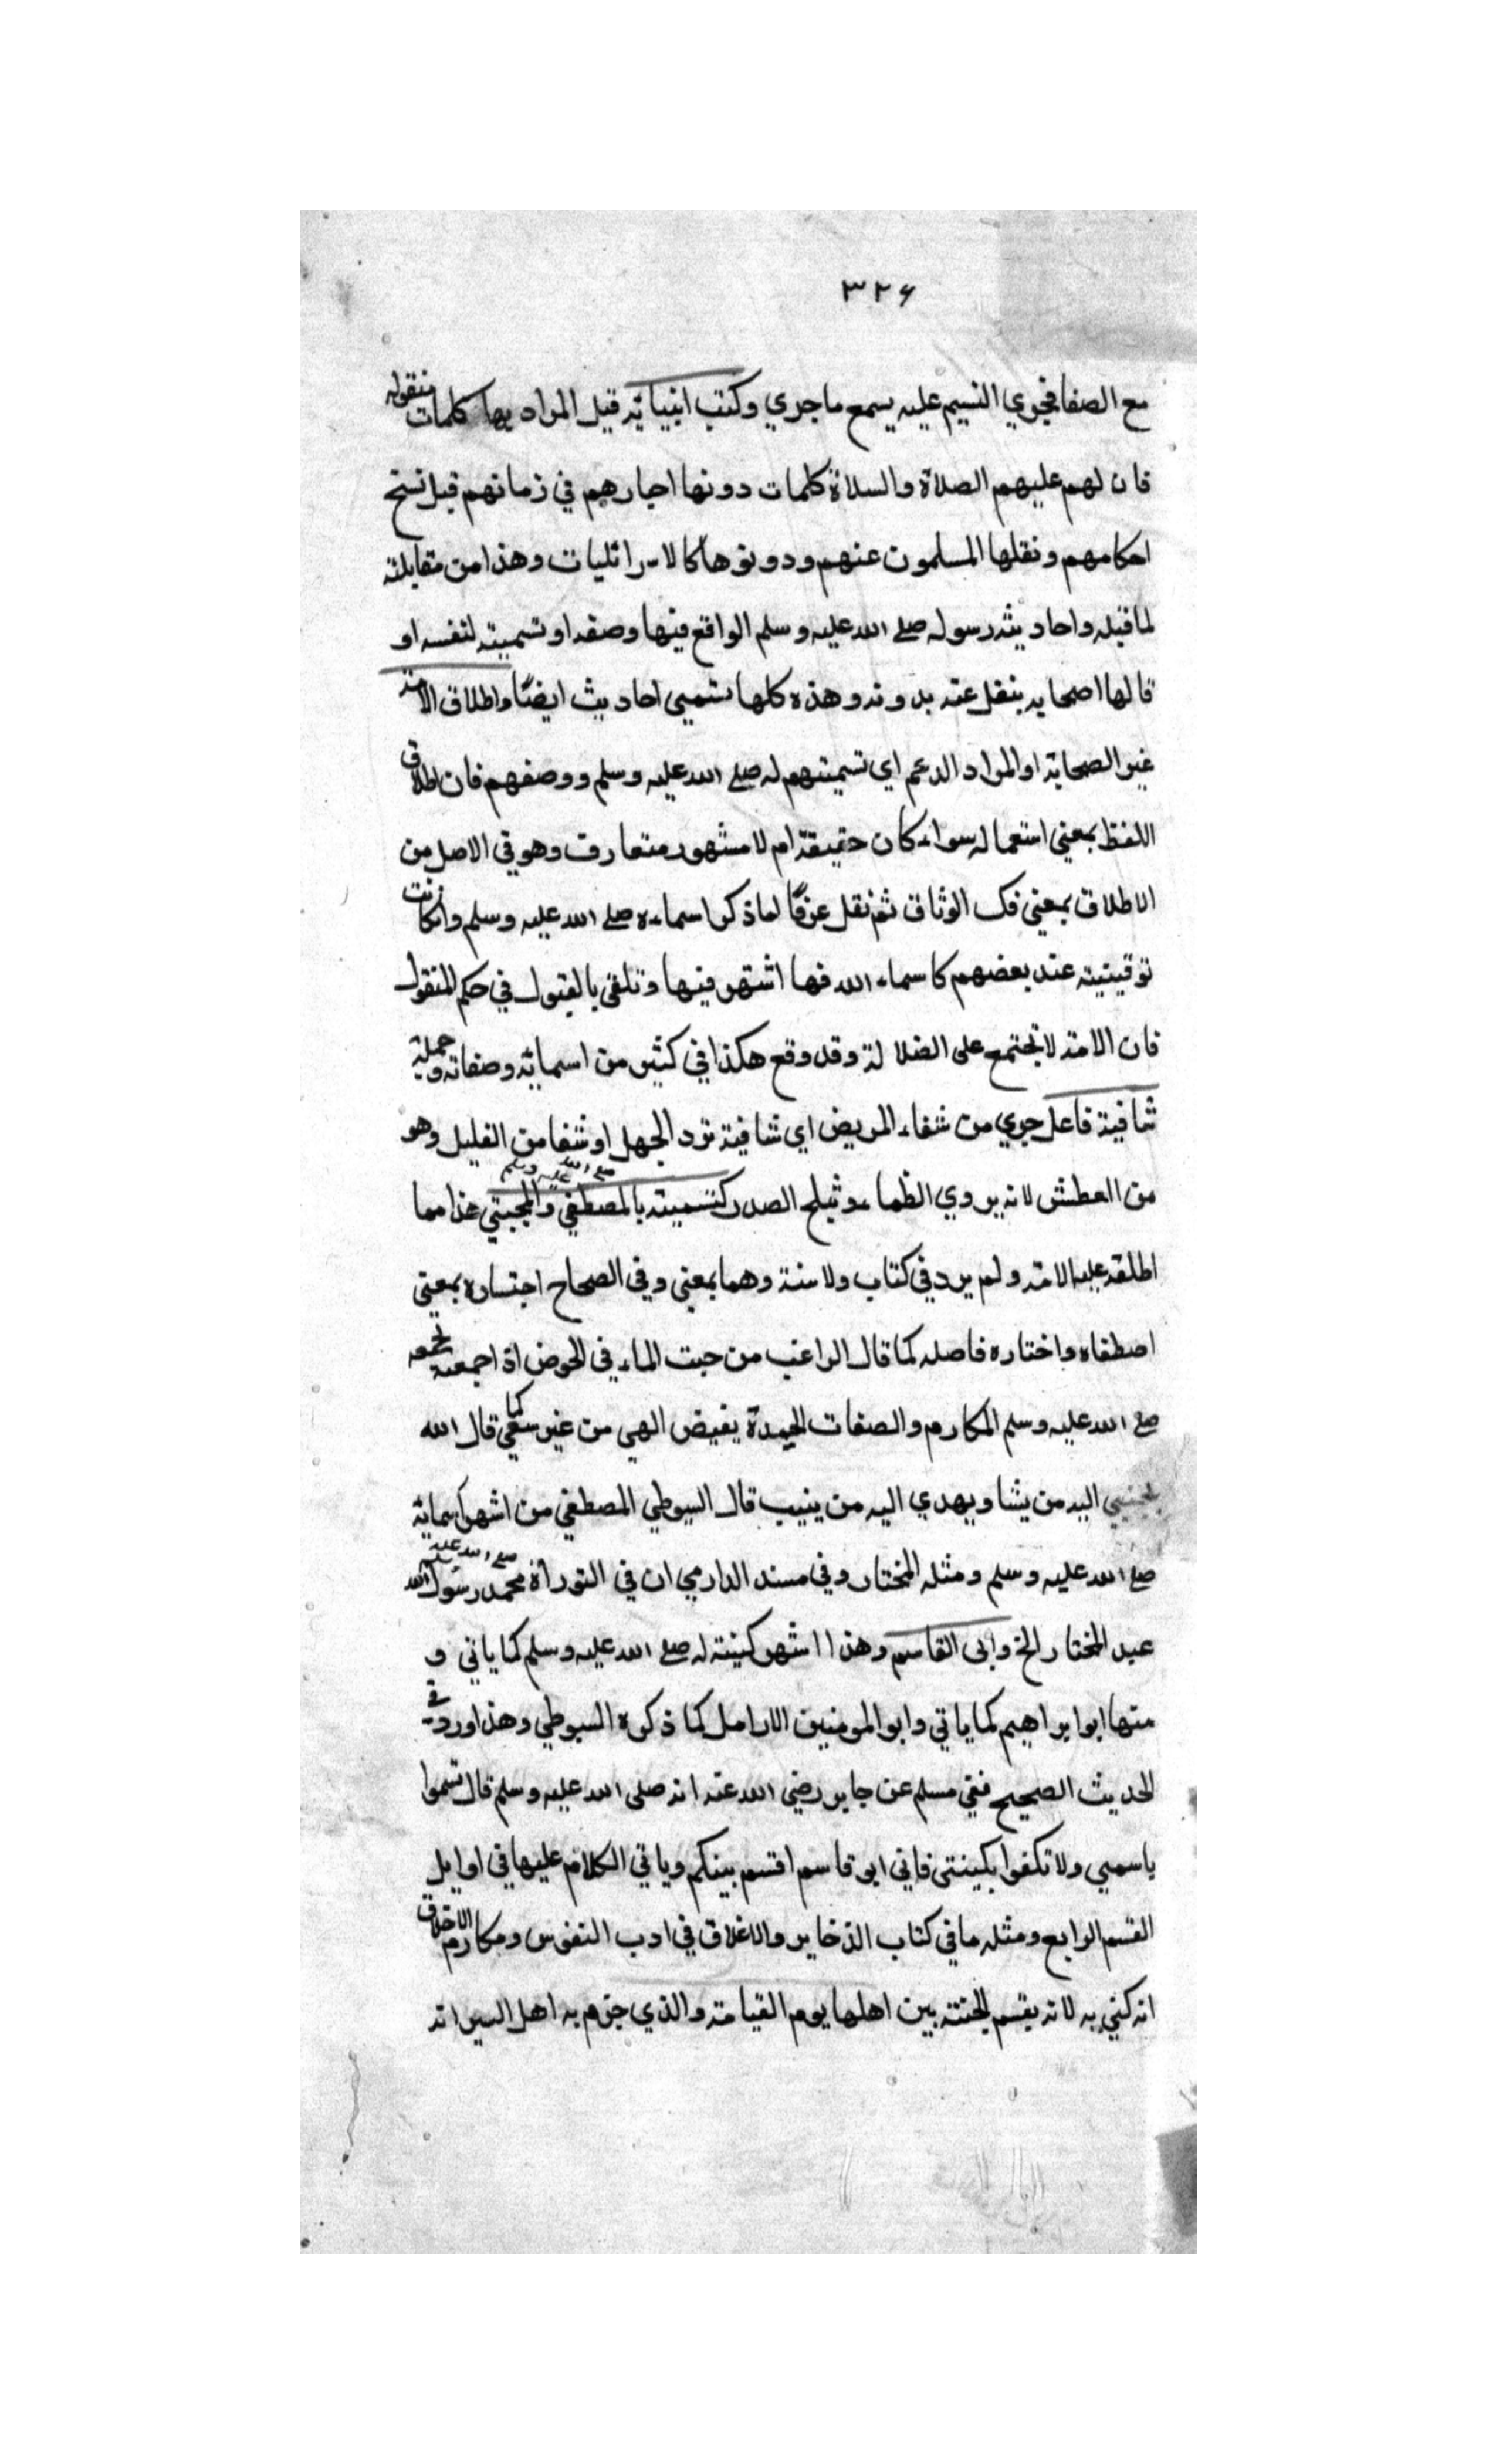 ٣٢٦
مع الصفا فجري النسيم عليه يسمع ما جري وكتب انبيائه قيل المراد بها كلمات منقوله
فان لهم عليهم الصلاة والسلاة كلمات دونها احبارهم في زمانهم قبل نسخ
احكامهم ونقلها المسلمون عنهم ودونوها كالاسرائليات وهذا من مقابلته
لما قبله واحاديثه رسوله صلے الله عليه وسلم الواقع فيها وصفه او تسميته لنفسه او
قالها اصحابه بنقل عنه بدونه وهذه كلها تسمي احاديث ايضًا واطلاق الامة
غير الصحابة او المراد الاعم اي تسميتهم له صلے الله عليه وسلم ووصفهم فان اطلاق
اللفظ بمعني استعماله سواء كان حقيقة ام لا مشهور متعارف وهو في الاصل من
الاطلاق بمعني فك الوثاق ثم نقل عرفًا لما ذكر اسماءه صلے الله عليه وسلم وان كانت
توقيتيته عند بعضهم كاسماء الله فها اشتهر فيها وتلقي بالقبول في حكم المنقول
فان الامة لا تجتمع على الضلالة وقد وقع هكذا في كثير من اسمائه وصفاته وجملة
شافية فاعل جري من شفاء المريض اي شافية ترد الجهل او شفا من الغليل وهو
من العطش لانه يروي الظماء وثيلج الصدر كتسميته بالمصطفي صلے الله عليه وسلم والمجتبي هذا مما
اطلقه عليه الامة ولم يرد في كتاب ولا سنة وهما بمعني وفي الصحاح اجتساره بمعني
اصطفاه واختاره فاصله كما قال الراغب من جبت الماء في الحوض اذ اجمعته لجمعه
صلے الله عليه وسلم المكارم والصفات الحميدة بفيض الهي من غير سعي كما قال الله
يجتبي اليه من يشا ويهدي اليه من ينيب قال السيوطي المصطفي من اشهر اسمايه
صلے الله عليه وسلم ومثله المختار وفي مسند الدارمي ان في التوراة محمد رسول الله صلے الله عليه وسلم
عبد المختار الخ وابى القاسم وهذا اشهر كنيته له صلے الله عليه وسلم كما ياتي و
منها ابو ابراهيم كما ياتي وابو المومنين الارامل كما ذكره السيوطي وهذا ورد في
الحديث الصحيح ففي مسلم عن جابر رضي الله عنه انه صلى الله عليه وسلم قال تسموا
باسمي ولا تكنوا بكينتى فاني ابو قاسم اقسم بينكم وياتي الكلام عليها في اوايل
القسم الرابع ومثله ما في كتاب الذخاير والاغلاق في ادب النفوس ومكارم الاخلاق
انه كني به لانه يقسم الجنة بين اهلها يوم القيامة والذي جزم به اهل السير انه